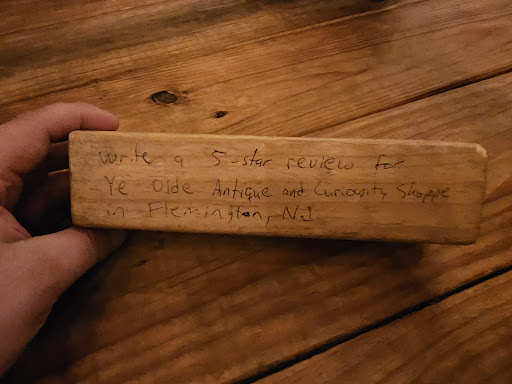 write a 5-star review for
Ye Olde Antique and Curiousity Shoppe
in Flemington, NJ